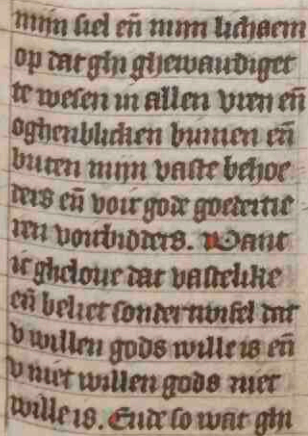 mijn siel en̄ mijn lichaem
op dat ghi ghewaudiget
te wesen in allen vren en̄
oghenblicken binnen en̄
buten mijn vaste behoe
ders en̄ voir gode goedertie
ren voirbidders. Want
ic gheloue dat vastelike
en̄ beliet sonder twifel dat
v willen gods wille is en̄
v niet willen gods niet
wille is. Ende so wat ghi